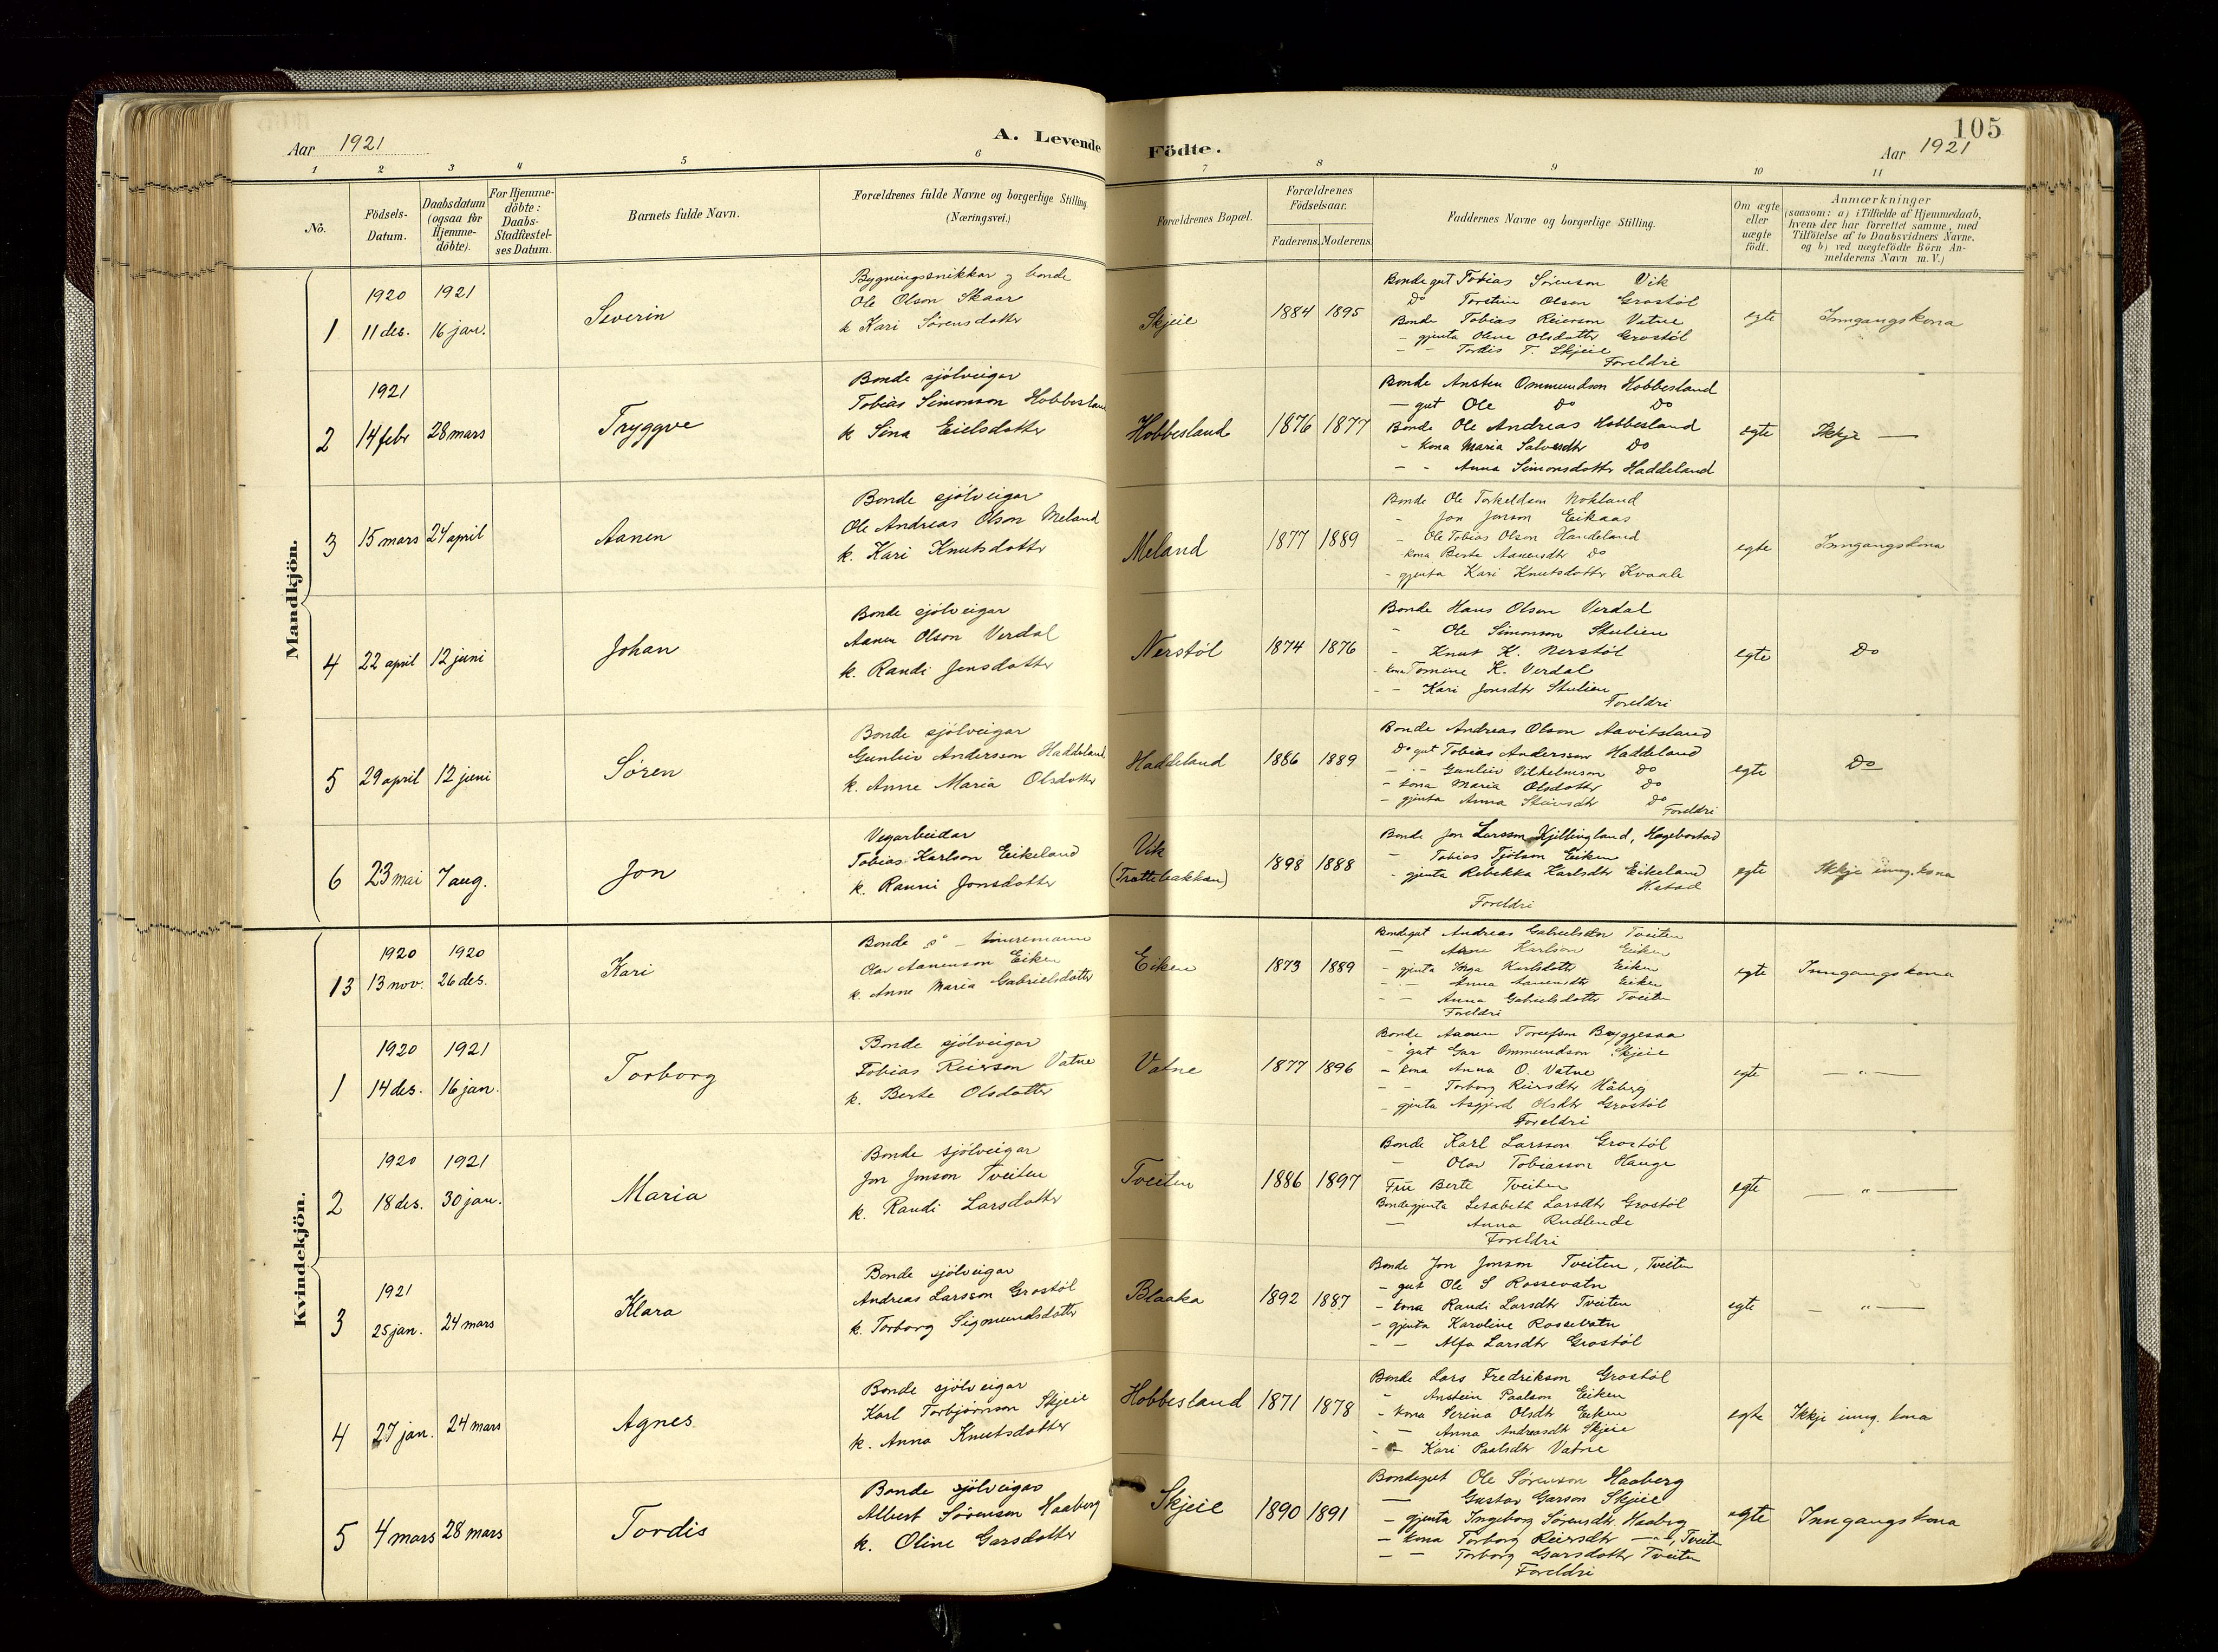 105
Aar 1921
A. Levende Födte.
Aar 1921
1 2 3 4 5 6 7 8 9 10 11
No.
Födsels-Datum.
Daabsdatum (ogsaa for Hjemme-döbte).
For Hjemme-döbte: Daabs-Stadfæstel-ses Datum.
Barnets fulde Navn.
Forældrenes fulde Navne og borgerlige Stilling. (Næringsvei.)
Forældrenes Bopæl.
Forældrenes Födselsaar.
Faderens. Moderens.
Faddernes Navne og borgerlige Stilling.
Om ægte eller uægte födt.
Anmærkninger
(saasom: a) i Tilfælde af Hjemmedaab,
hvem der har forrettet samme, med
Tilföielse af to Daabsvidners Navne,
og b) ved uægtefödte Börn An-
melderens Navn m. V.)
Mandkjön.
1
1920 11 des.
1921 16 jan.
Severin
Bygningssnikkar og bonde
Ole Olson Skaar
k Kari Sørensdotter
Skjeie
1884 1895
Bondegut Tobias Sørenson Vik
Do Torstein Olson Grostøl
Bonde Tobias Reierson Vatne
- gjenta Olene Olsdotter Grostøl
- - Tordis T. Skjeie
Foreldri
egte
Inngangskona
2
1921 14 febr
28 mars
Tryggve
Bonde sjölveigar
Tobias Simonson Hobbesland
k Sina Eielsdotter
Hobbesland
1876 1877
Bonde Ansten Ommundson Hobbesland
- gut Ole Do Do
Bonde Ole Andreas Hobbesland
- kona Maria Salvesdtr Do
- - Anna Simonsdotter Haddeland
egte
Ikkje —
3
15 mars
24 april
Aanen
Bonde sjölveigar
Ole Andreas Olson Meland
k. Kari Knutsdotter
Meland
1877 1889
Bonde Ole Torkeldson Nokland
- Jon Jonson Eikaas
- Ole Tobias Olson Handeland
kona Berte Aanensdtr Do
- gjenta Kari Knutsdotter Kvaale
egte
Inngangskona
4
22 april
12 juni
Johan
Bonde sjölveigar
Aanen Olson Verdal
k. Randi Jonsdotter
Nerstöl
1874 1876
Bonde Hans Olson Verdal
- Ole Simonson Stulien
- Knut K. Nerstøl
- kona Tomine K. Verdal
- - Kari Jonsdtr Stulien
Foreldri
egte
Do
5
29 april
12 juni
Søren
Bonde sjölveigar
Gunleiv Andersson Haddeland
k. Anne Maria Olsdotter
Haddeland
1886 1889
Bonde Andreas Olson Aavitsland
Do gut Tobias Andersson Haddeland
- - Gunleiv Vilhelmson Do
- kona Maria Olsdotter Do
- gjenta Anna Do
Foreldri
egte
Do
6
23 mai
7 aug.
Jon
Vegarbeidar
Tobias Karlson Eikeland
k. Ranni Jonsdotter
Vik
(Trattebakkan)
1898 1888
Bonde Jon Larsson Kjillingland, Hægebostad
- Tobias Tjølson Eiken
- gjenta Rebekka Karlsdtr Eikeland
Foreldri
egte
Ikkje inng. kona
Kvindekjön.
13
1920 13 nov.
1920 26 des.
Kari
Bonde o - tømremann
Olav Aanenson Eiken
k. Anne Maria Gabrielsdotter
Eiken
1873 1889
Bondegut Andreas Gabrielson Tveiten
- Arne Karlson Eiken
- gjenta Inga Karlsdotter Eiken
- - Anna Aanensdtr Eiken
- - Anna Gabrielsdotter Tveiten
Foreldri
egte
Inngangskona
1
1920 14 des.
1921 16 jan.
Torborg
Bonde sjölveigar
Tobias Reierson Vatne
k. Berte Olsdotter
Vatne
1877 1896
Bonde Aanen Bryggesaa
- gut Gar Ommundson Skjeie
- kona Anna O. Vatne
- - Torborg Reiersdtr Håberg
- gjenta Asgjerd Olsdtr Grostöl
Foreldri
egte
— " —
2
1920 18 des.
1921 30 jan.
Maria
Bonde sjölveigar
Jon Jonson Tveiten
k. Randi Larsdotter
Tveiten
1886 1897
Bonde Karl Larsson Grostöl
- Olav Tobiasson Hauge
Frú Berte Tveiten
Bondegjenta Lisabeth Larsdtr Grostöl
— Anna Rudlende
Foreldri
egte
— " —
3
1921 25 jan.
24 mars
Klara
Bonde sjölveigar
Andreas Larsson Grostöl
k. Torborg Sigmundsdotter
Blaaka
1892 1887
Bonde Jon Jonson Tveiten, Tveiten
- gut Ole S Rossevatn
- kona Randi Larsdtr Tveiten
- gjenta Karoline Rossevatn
- - Alfa Larsdtr Grostöl
egte
— " —
4
27 jan.
24 mars
Agnes
Bonde sjölveigar
Karl Torbjørnson Skjeie
k. Anna Knutsdotter
Hobbesland
1871 1878
Bonde Lars Fredrikson Grostöl
- Anstein Paalson Eiken
- kona Serina Olsdtr Eiken
- - Anna Andreasdtr Skjeie
- - Kari Paalsdtr Vatne
egte
Ikkje inng. kona
5
4 mars
28 mars
Tordis
Bonde sjölveigar
Albert Sörenson Haaberg
k. Oline Garsdotter
Skjeie
1890 1891
Bondegut Ole Sørenson Haaberg
— Gustav Garson Skjeie
- gjenta Ingeborg Sørensdtr Haaberg
- kona Torborg Reiersdtr — " —, Tveiten
- - Torborg Garsdotter Tveiten
Foreldri
egte
Inngangskona